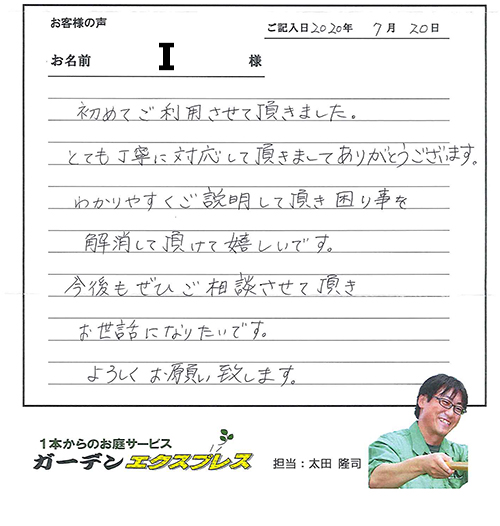 お客様の声
ご記入日2020年 7月 20日
お名前 I 様
初めてご利用させて頂きました。
とても丁寧に対応して頂きましてありがとうございます。
わかりやすくご説明して頂き困り事を
解消して頂けて嬉しいです。
今後もぜひご相談させて頂き
お世話になりたいです。
よろしくお願い致します。
1本からのお庭サービス
ガーデンエクスプレス
担当:太田 隆司